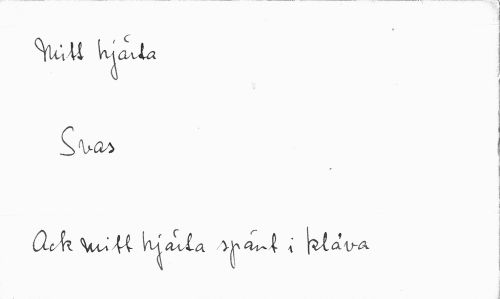 Mitt hjärta
Svas
Ack mitt hjärta spänt i klåva